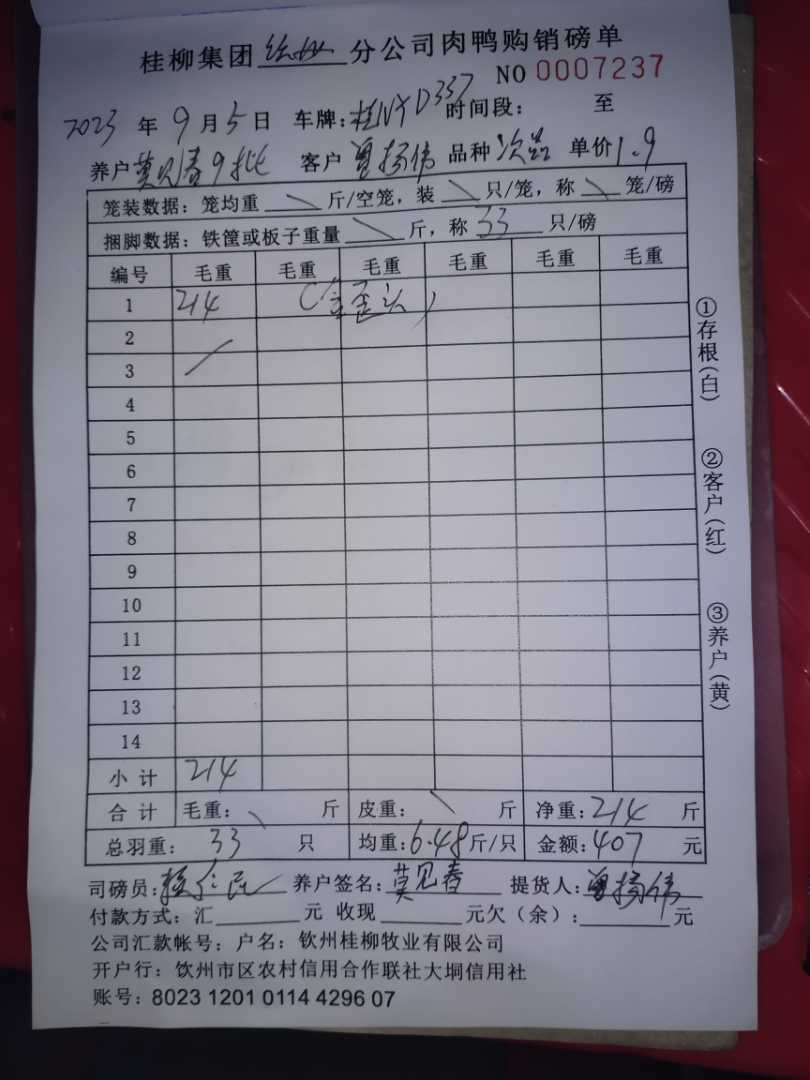 桂柳集团 分公司肉鸭购销磅单
NO 0007237
2023 年 9 月 5 日 车牌:桂NYD337 时间段: 至
养户 莫见春9批 客户 曾扬伟 品种 次品 单价 1.9
笼装数据:笼均重 \ 斤/空笼,装 \ 只/笼,称 \ 笼/磅
捆脚数据:铁筐或板子重量 \ 斤,称 33 只/磅
编号 毛重 毛重 毛重 毛重 毛重 毛重
1 214 (全歪头)
2
3
4
5
6
7
8
9
10
11
12
13
14
小计 214
合计 毛重: \ 斤 皮重: \ 斤 净重:214 斤
总羽重: 33 只 均重:6.48斤/只 金额:407 元
司磅员: 养户签名:莫见春 提货人:曾扬伟
付款方式:汇 元 收现 元欠(余): 元
公司汇款帐号:户名:钦州桂柳牧业有限公司
开户行:饮州市区农村信用合作联社大垌信用社
账号:8023 1201 0114 4296 07
①存根(白)
②客户(红)
③养户(黄)